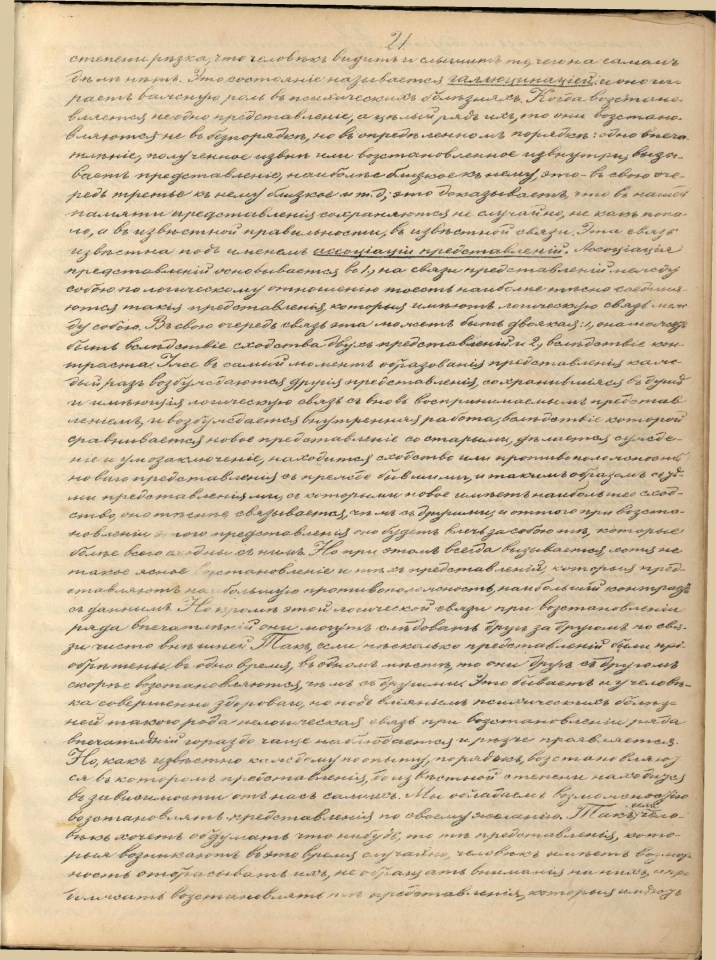 21.
степени рѣзка, что человѣкъ видитъ и слышитъ то, чего на самомъ
дѣлѣ нѣтъ. Это состояніе называется галлюцинаціей и оно иг-
раетъ важную роль въ психическихъ болѣзняхъ. Когда возстано-
вляется не одно представленіе, а цѣлый рядъ ихъ, то они возстано-
вляются не въ безпорядкѣ, но въ опредѣленномъ порядкѣ: одно впеча-
тлѣніе, полученное извнѣ или возстановленное извнутри, вызы-
ваетъ представленіе, наиболѣе близкое къ нему, это - въ свою оче-
редь третье къ нему близкое и т.д; это доказываетъ, что въ нашей
памяти представленія сохраняются не случайно, не какъ попа-
ло, а въ извѣстной правильности, въ извѣстной связи. Эта связь
извѣстна подъ именемъ ассоціаціи представленій. Ассоціація
представленій основывается въ 1, на связи представленій между
собою по логическому отношенію то есть наиболѣе тѣсно соединя-
ются такія представленія, которыя имѣютъ логическую связь меж-
ду собою. Въ свою очередь связь эта можетъ быть двоякая: 1, она можетъ
быть вслѣдствіе сходства двухъ представленій и 2, вслѣдствіе кон-
траста. Уже въ самый моментъ образованія представленія каж-
дый разъ возбуждаются другія представленія, сохранившіяся въ душѣ
и имѣющія логическую связь съ вновь воспринимаемымъ представ-
леніемъ, и возбуждается внутренняя работа, вслѣдствіе которой
сравнивается новое представленіе со старыми, дѣлается сужде-
ніе и умозаключеніе, находится сходство или противоположность
новаго представленія съ прежде бывшими, и такимъ образомъ съ тѣ-
ми представленіями, съ которыми новое имѣетъ наибольшее сход-
ство, оно тѣснѣе связывается, чѣмъ съ другими, и оттого при возста-
новленіи этого представленія оно будетъ влечь за собою тѣ, которые
болѣе всего сходны съ нимъ. Но при этомъ всегда вызывается хотя не
такое ясное возстановленіе и тѣхъ представленій, которыя пред-
ставляютъ наибольшую противоположность, наибольшій контрастъ
съ даннымъ. Но кромѣ этой логической связи при возстановленіи
ряда впечатлѣній они могутъ слѣдовать другъ за другомъ по свя-
зи чисто внѣшней. Такъ, если нѣсколько представленій были прі-
обрѣтены въ одно время, въ одномъ мѣстѣ, то они другъ съ другомъ
скорѣе возстановляются, чѣмъ съ другими. Это бываетъ и у человѣ-
ка совершенно здороваго, но подъ вліяніемъ психическихъ болѣз-
ней такого рода нелогическая связь при возстановленіи ряда
впечатлѣній гораздо чаще наблюдается и рѣзче проявляется.
Но, какъ извѣстно каждому по опыту, порядокъ, возстановляют
ся въ которомъ представленія, до извѣстной степени находится
въ зависимости отъ насъ самихъ. Мы обладаемъ возможностью
возстановлять представленія по своему желанію. Такъ, если чело-
вѣкъ хочетъ обдумать что нибудь, то тѣ представленія, кото-
рыя возникаютъ въ это время случайно, человѣкъ имѣетъ возмож-
ность отбрасывать ихъ, не обращать вниманія на нихъ, и про-
должать возстановлять тѣ представленія, которыя имѣютъ